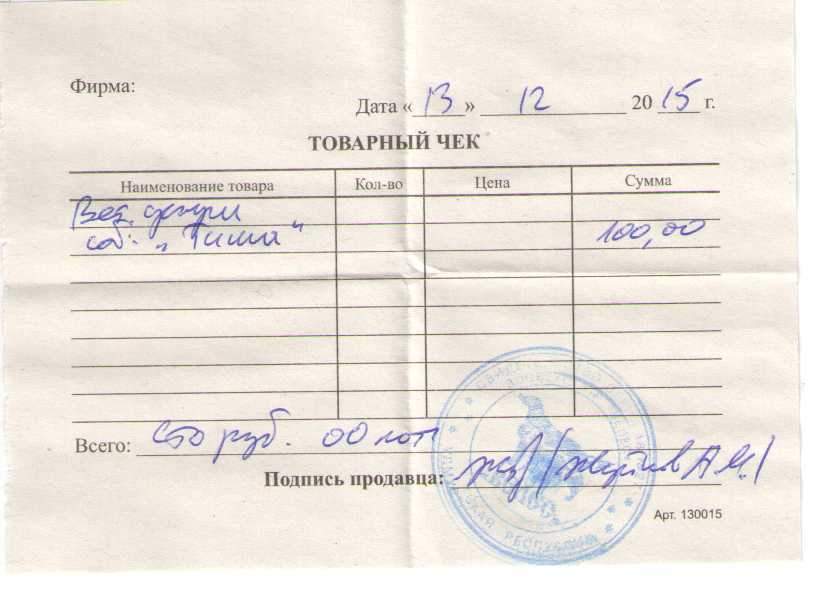 Фирма:
Дата «13» 12 2015 г.
ТОВАРНЫЙ ЧЕК
Наименование товара Кол-во Цена Сумма
Вет. услуги
соб. „Тиша“ 100,00
Всего: Сто руб. 00 коп
Подпись продавца:
РЕСПУБЛИКА
Арт. 130015